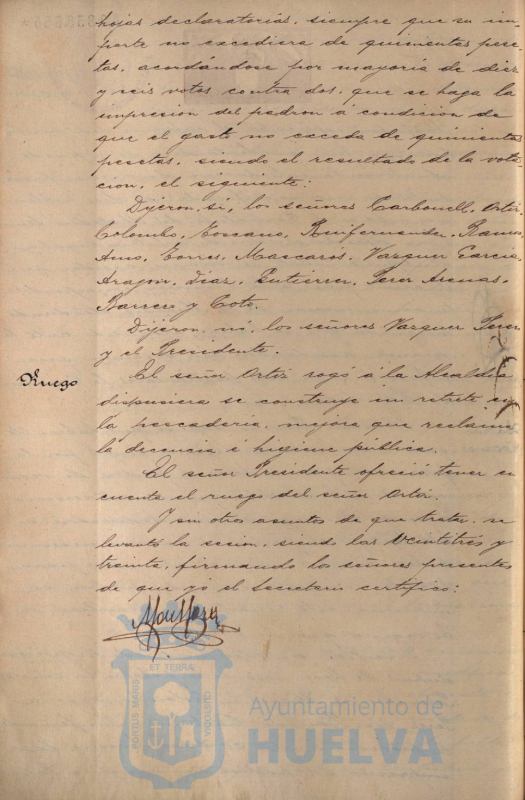 hojas declaratorias, siempre que su im-
porte no excediera de quinientas pese-
tas, acordándose por mayoría de diez
y seis votos contra dos, que se haga la
impresion del padron á condicion de
que el gasto no exceda de quinientas
pesetas, siendo el resultado de la vota-
cion, el siguiente:
Dijeron, sí, los señores Carbonell, Ortiz,
Colombo, Toscano, Ruifernandez, Ramos,
Amo, Torres, Mascarós, Vazquez Garcia,
Aragon, Diaz, Gutierrez, Perez Arenas,
Barrero y Coto.
Dijeron, nó, los señores Vazquez Perez
y el Presidente.
Ruego
El señor Ortiz rogó á la Alcaldia
dispusiera se construye un retrete en
la pescadería, mejora que reclama
la decencia é higiene pública.
El señor Presidente ofreció tener en
cuenta el ruego del señor Ortiz.
Y sin otros asuntos de que tratar, se
levantó la sesion, siendo las veintitres y
treinta, firmando los señores presentes
de que yo el Secretario certifico:
ET TERRA
PORTUS MARIS
CUSTODIA
Ayuntamiento de
HUELVA